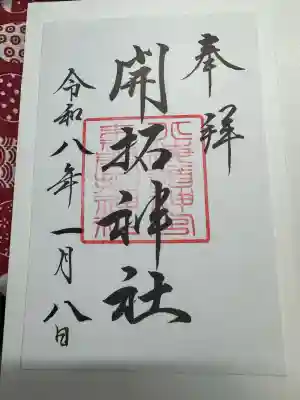 奉拝
開拓神社
令和八年一月八日